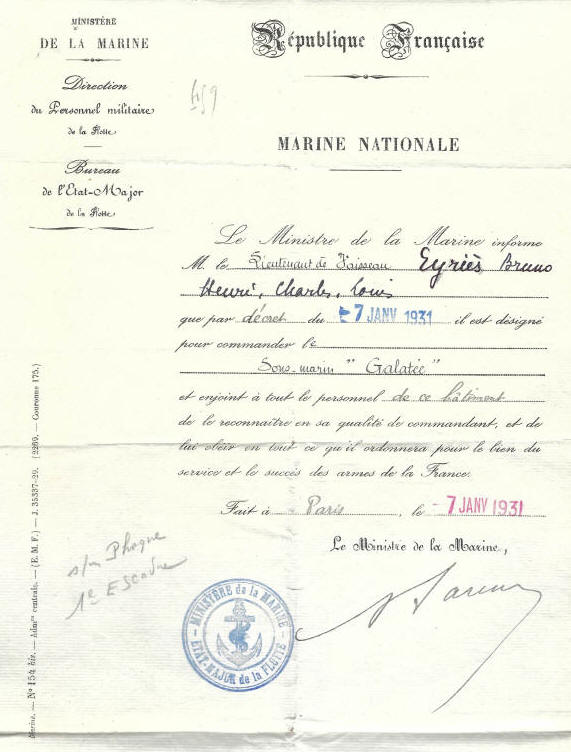 MINISTÈRE
DE LA MARINE
Direction
du Personnel militaire
de la Flotte
Bureau
de l'État-Major
de la Flotte
République Française
MARINE NATIONALE
Le Ministre de la Marine informe
M. le Lieutenant de Vaisseau Eyriès Bruno
Henri, Charles, Louis
que par décret du -7 JANV 1931 il est désigné
pour commander le
Sous-marin "Galatée"
et enjoint à tout le personnel de ce bâtiment
de le reconnaître en sa qualité de commandant, et de
lui obéir en tout ce qu'il ordonnera pour le bien du
service et le succès des armes de la France.
Fait à Paris, le -7 JANV 1931
Le Ministre de la Marine,
s/m Phoque
1e Escadre
MINISTÈRE de la MARINE
ÉTAT-MAJOR de la FLOTTE
Marine. — N° 154 bis. — Impie centrale. — (E.M.F.) — J. 35337-29. (2299. — Couronne 175.)